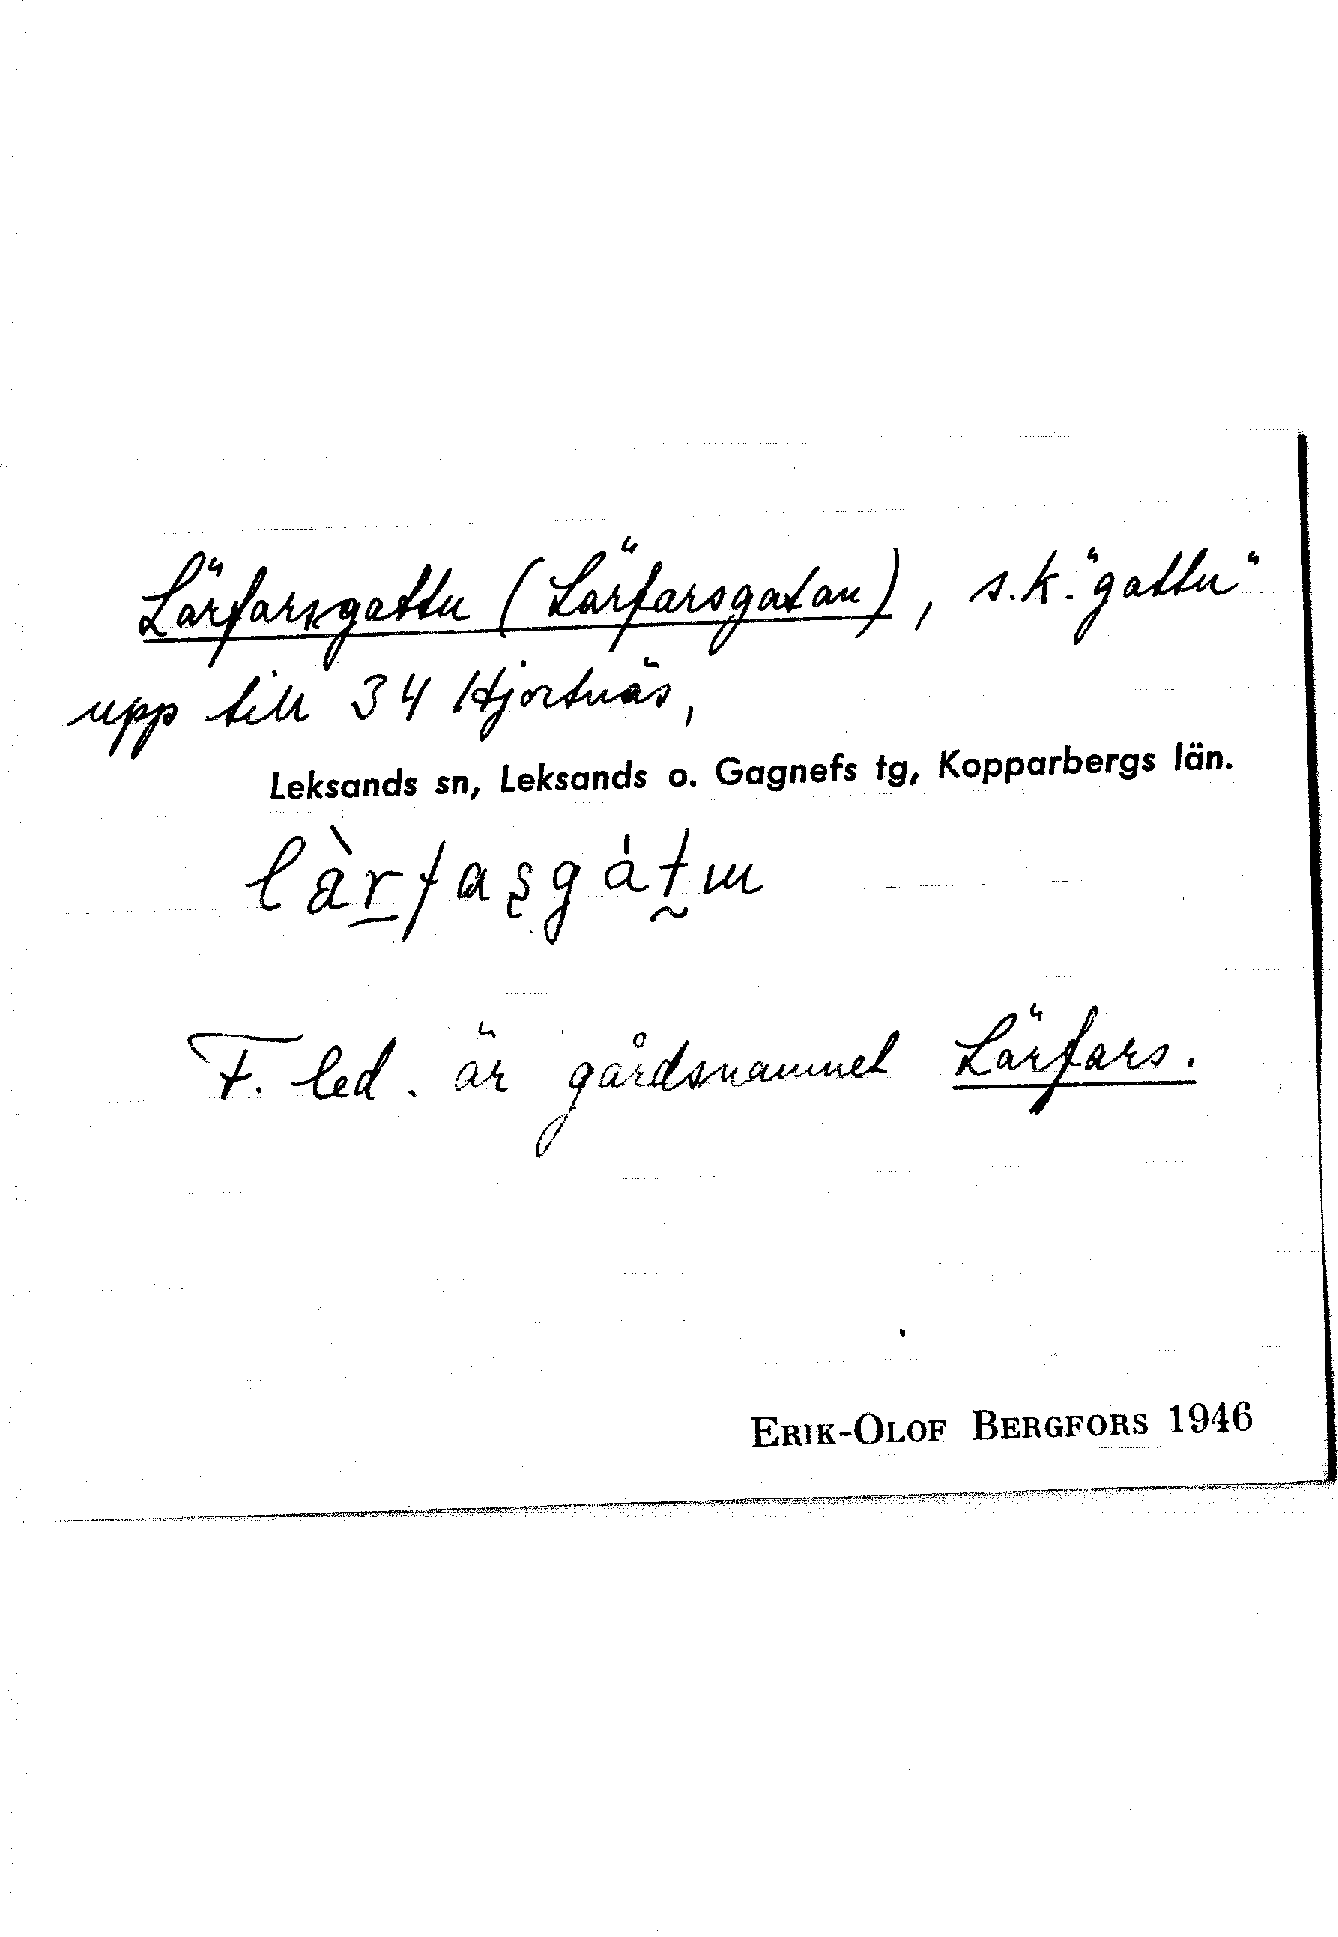 Lärfarsgattu (Lärfarsgatan), s.k. "gattu"
upp till 34 Hjortnäs,
Leksands sn, Leksands o. Gagnefs tg, Kopparbergs län.
F. led. är gårdsnamnet Lärfars.
ERIK-OLOF BERGFORS 1946